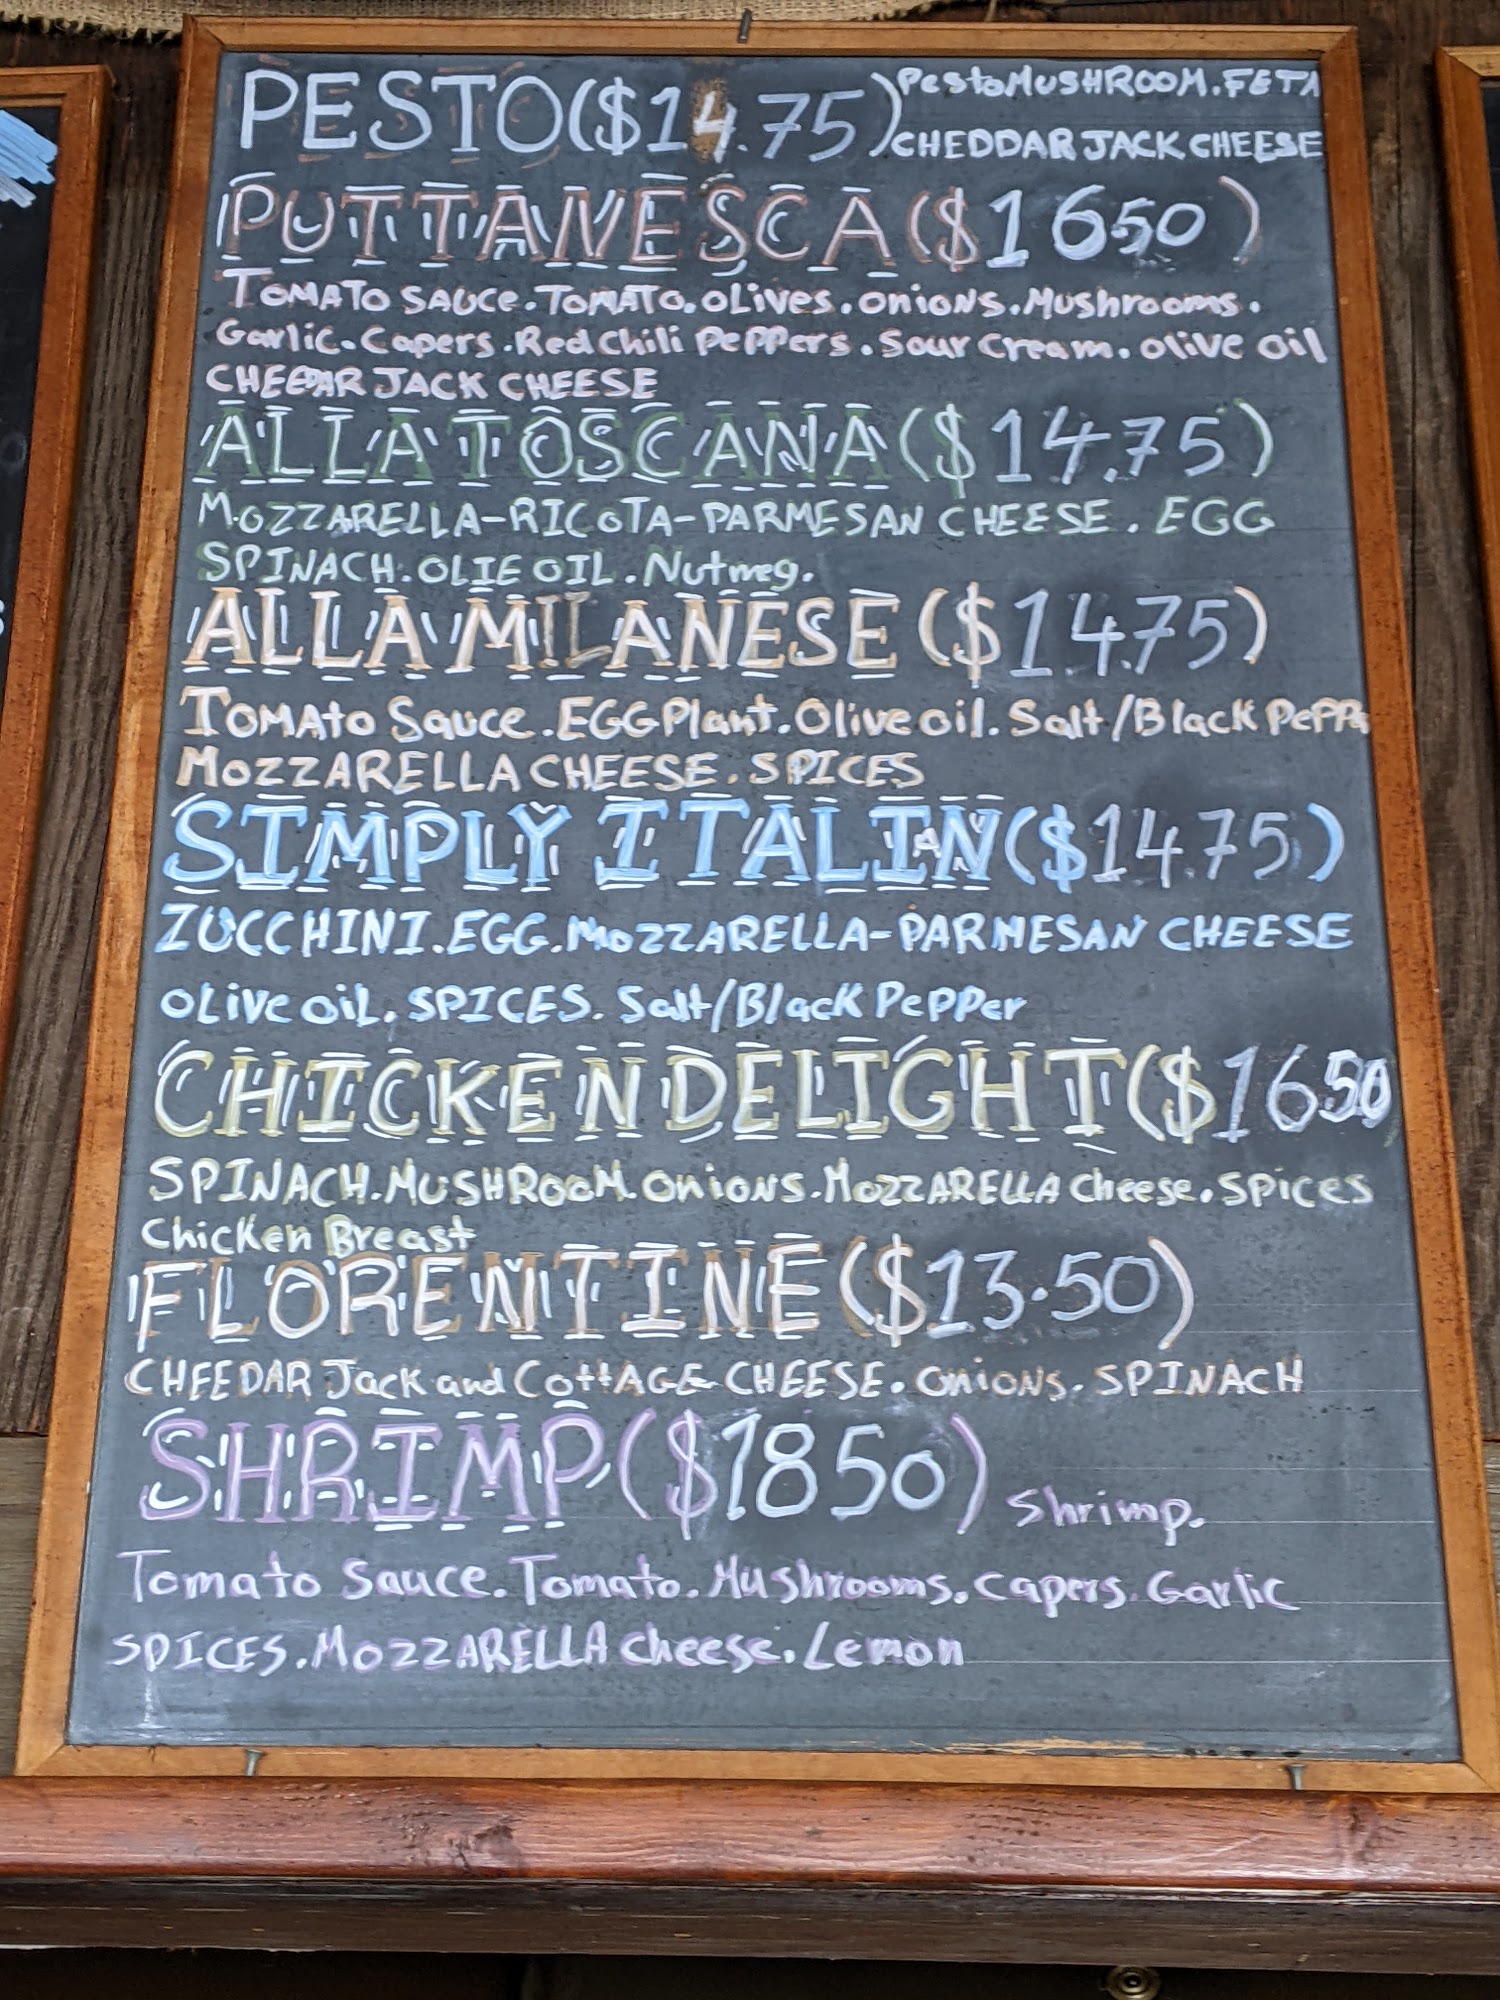 PESTO($14.75) Pesto MUSHROOM.FETA
CHEDDAR JACK CHEESE
PUTTANESCA($1650)
TOMATO SAUCE.TOMATO.OLIVES.ONIONS.Mushrooms.
Garlic.Capers.Red Chili Peppers.Sour Cream.Olive oil
CHEEDAR JACK CHEESE
ALLA TOSCANA($14.75)
MOZZARELLA-RICOTA-PARMESAN CHEESE.EGG
SPINACH.OLIE OIL.Nutmeg.
ALLA MILANESE($14.75)
TOMAto Sauce.EGGPlant.Olive oil.Salt/Black PePPe
MOZZARELLA CHEESE.SPICES
SIMPLY ITALIAN($14.75)
ZUCCHINI.EGG.MOZZARELLA-PARMESAN CHEESE
OLive oil.SPICES.Salt/Black PePPer
CHICKEN DELIGHT($1650
SPINACH.MUSHROOM.Onions.MOZZARELLA Cheese.SPices
Chicken Breast
FLORENTINE($13.50)
CHEEDAR Jack and COttAGE CHEESE.Onions.SPINACH
SHRIMP($1850) Shrimp.
Tomato Sauce.Tomato.Mushrooms.Capers.Garlic
SPICES.MOZZARELLA Cheese.Lemon